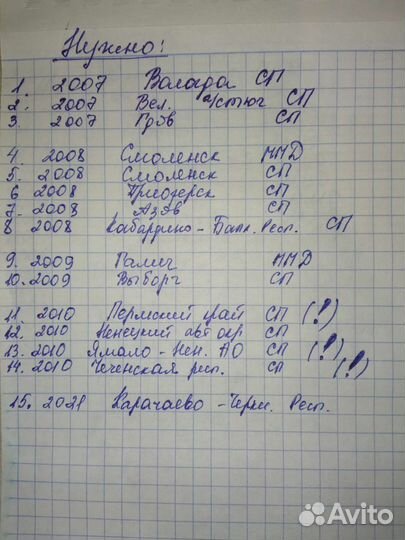 Нужно:
1. 2007 Вологда СП
2. 2007 Вел. Устюг СП
3. 2007 Гдов СП
4. 2008 Смоленск ММД
5. 2008 Смоленск СП
6 2008 Приозерск СП
7. 2008 Азов СП
8 2008 Кабардино-Балк. Респ. СП
9. 2009 Галич ММД
10. 2009 Выборг СП
11. 2010 Пермский край СП (!)
12. 2010 Ненецкий авт окр СП
13. 2010 Ямало-Нен. АО СП (!)
14. 2010 Чеченская респ. СП (!)
15. 2021 Карачаево-Черк. Респ.
Avito